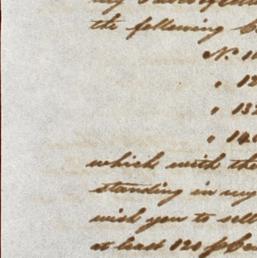 the following
No 1
" 12
" 132
" 140
which with the
standing in my
wish you to sell
at least 120